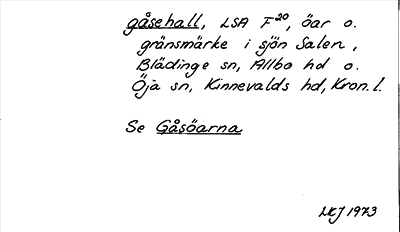 gåsehall, LSA F20, öar o.
gränsmärke i sjön Salen,
Blädinge sn, Allbo hd o.
Öja sn, Kinnevalds hd, Kron. l.
Se Gåsöarna
LKJ 1973